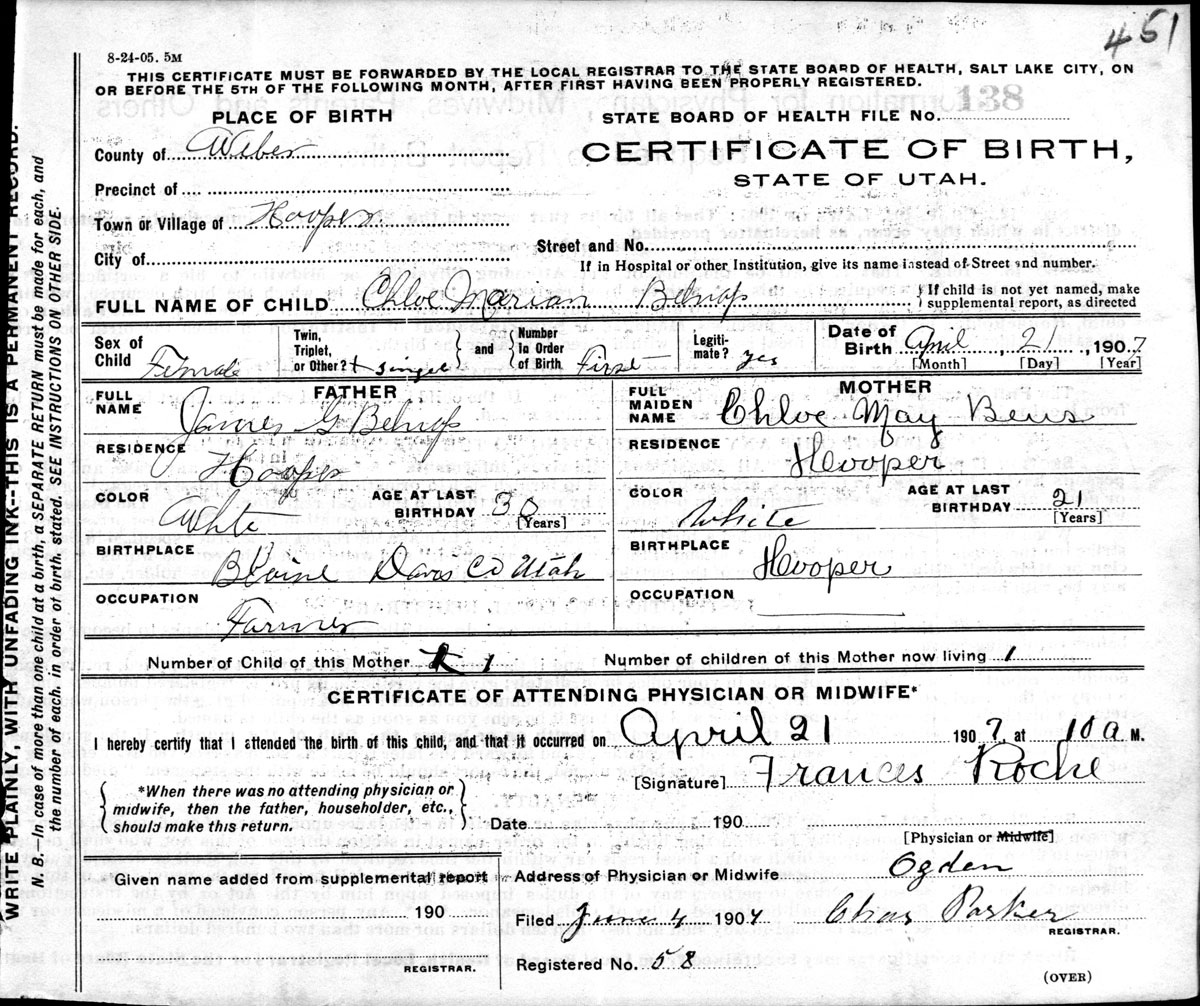 451
8-24-05. 5M
THIS CERTIFICATE MUST BE FORWARDED BY THE LOCAL REGISTRAR TO THE STATE BOARD OF HEALTH, SALT LAKE CITY, ON
OR BEFORE THE 5TH OF THE FOLLOWING MONTH, AFTER FIRST HAVING BEEN PROPERLY REGISTERED.
138
PLACE OF BIRTH
STATE BOARD OF HEALTH FILE No.
County of Weber
CERTIFICATE OF BIRTH,
STATE OF UTAH.
Precinct of
Town or Village of Hooper
Street and No.
City of
If in Hospital or other Institution, give its name instead of Street and number.
FULL NAME OF CHILD Chloe Marian Belnap
{If child is not yet named, make
supplemental report, as directed
Sex of Child Female
Twin, Triplet, or Other? single
and
Number in Order of Birth First
Legitimate? yes
Date of Birth April, 21, 1907
[Month] [Day] [Year]
FATHER
FULL NAME James G Belnap
RESIDENCE Hooper
COLOR White
AGE AT LAST BIRTHDAY 30 [Years]
BIRTHPLACE Davis Co Utah
OCCUPATION Farmer
MOTHER
FULL MAIDEN NAME Chloe May Beus
RESIDENCE Hooper
COLOR White
AGE AT LAST BIRTHDAY 21 [Years]
BIRTHPLACE Hooper
OCCUPATION
Number of Child of this Mother 1
Number of children of this Mother now living 1
CERTIFICATE OF ATTENDING PHYSICIAN OR MIDWIFE*
I hereby certify that I attended the birth of this child, and that it occurred on April 21 1907 at 10 a M.
[Signature] Frances Roche
{*When there was no attending physician or
midwife, then the father, householder, etc.,
should make this return.}
Date 190
[Physician or Midwife]
Given name added from supplemental report
190
REGISTRAR.
Address of Physician or Midwife Ogden
Filed June 4 1907 Chas Parker
REGISTRAR.
Registered No. 58
(OVER)
WRITE PLAINLY, WITH UNFADING INK--THIS IS A PERMANENT RECORD.
N. B.—In case of more than one child at a birth, a SEPARATE RETURN must be made for each, and
the number of each, in order of birth, stated. SEE INSTRUCTIONS ON OTHER SIDE.